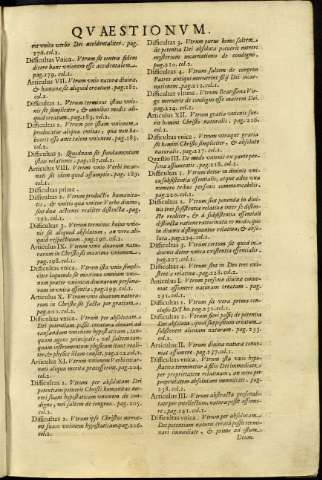 QVAESTIONVM.
nœ vnita verbo Dei accidentaliter. pag.
178. col.1.
Difficultas Vnica. Vtrum sit contra fidem
dicere hanc vnionem esse accidentalem.
pag.179. col.1.
Articulus VII. Vtrum vnio naturæ diuinæ,
& humanæ sit aliquid creatum. pag.181.
col.1.
Difficultas 1. Vtrum terminus istius vnionis
sit simpliciter, & omnibus modis aliquid
creatum. pag.181. col.2.
Difficultas 2. Vtrum per istam vnionem,
producatur aliqua entitas, quæ non haberet
esse ante istam vnionem. pag.185.
col.1.
Difficultas 3. Quodnam sit fundamentum
istius relationis. pag.187. col.2.
Articulus VIII. Vtrum vnio Verbi incarnati
sit idem quod assumptio. pag. 189.
col.1.
Difficultas prima.
Difficultas 2. Vtrum productio humanitatis,
& vnitio qua vnitur Verbo diuino,
sint duæ actiones realiter distinctæ. pag.
col.1.
Difficultas 3. Vtrum terminus huius vnionis
sit aliquid absolutum, an vero aliquid
respectiuum. pag.
col.1.
Articulus IX. Vtrum vnio duarum naturarum
in Christo sit maxima vnionum.
Difficultas vnica. Vtrum ista vnio simpliciter
loquendo sit maxima omnium vnionum
præter vnitatem diuinarum personarum
in vna essentia. pag.199. col.1.
Articulus X. Vtrum vnio duarum naturarum
in Christo sit facta per gratiam.
pag.
col.2.
Difficultas vnica. Vtrum per absolutam
Dei potentiam possit creatura eleuari ad
causandum vnionem hypostaticam, non
quam instrumentum physicum
& physice illam causet. pag.202. col.1.
Articulus XI. Vtrum vnionem Verbi incarnati
aliqua merita præcesserint. pag.204.
col.1.
Difficultas 1. Vtrum per absolutam Dei
potentiam potuerit Christus humanitas mereri
suam hypostaticam vnionem de condigno,
vel saltem de congruo. pag. 205.
col.1.
Difficultas 2. Vtrum ipse Christus meruerit
suam vnionem hypostaticam. pag.206.
col.1.
Difficultas 3. Vtrum purus homo saltem
de potentia Dei absoluta potuerit mereri
mysterium incarnationis de condigno.
pag.210. col.1.
Difficultas 4. Vtrum saltem de congruo
Patres antiqui meruerint ipsi Dei incarnationem.
pag.212. col.1.
Difficultas vltima. Vtrum Beatissima Virgo
meruerit de congruo esse mater Dei.
pag.214. col.1.
Articulus XII. Vtrum gratia vnionis fuerit
homini Christo naturalis. pag.216.
col.1.
Difficultas vnica. Vtrum vtraque gratia
sit homini Christo simpliciter, & absolute
naturalis. pag.217. col.1.
Quæstio III. De modo vnionis ex parte personæ
assumentis. pag.218. col.1.
Difficultas 1. Vtrum detur in diuinis vnica
subsistentia essentialis, atque adeo vna
numero tribus personis communicabilis.
pag.220. col.1.
Difficultas 2. Vtrum sint ponendæ in diuinis
tres subsistentiæ relatiuæ inter se distinctæ
realiter, & à subsistentia essentiali
distinctæ ratione ratiocinata eo modo, quo
in diuinis distinguuntur relatiua, & absoluta.
pag.224. col.1.
Difficultas 3. Vtrum certum sit quod in diuinis
detur vnica existentia essentialis.
pag.227. col.1.
Difficultas 4. Vtrum sint in Deo tres existentiæ
relatiuæ. pag.228. col.1.
Articulus I. Vtrum personæ diuinæ conueniat
assumere naturam creatam. pag.231.
col.1.
Difficultas 1. Vtrum sit vera prima conclusio
D.Tho. pag.231. col.1.
Difficultas 2. Vtrum fieri possit de potentia
Dei absoluta, quod suppositum creatum,
sustentet alienam naturam. pag. 233.
col.1.
Articulus II. Vtrum diuinæ naturæ conueniat
assumere. pag.237. col.1.
Difficultas vnica. Vtrum ista vnio hypostatica
terminetur à ipso Dei immediate,
per proprietatem relatiuam, an vero per
proprietatem absolutam immediate. pag.
238. col.1.
Articulus III. Vtrum abstracta personalitate
per intellectum, natura possit assumere.
pag. 251. col.2.
Difficultas vnica. Vtrum per absolutam
Dei potentiam natura creata possit terminari
immediate, & primo ad istam
Deum.